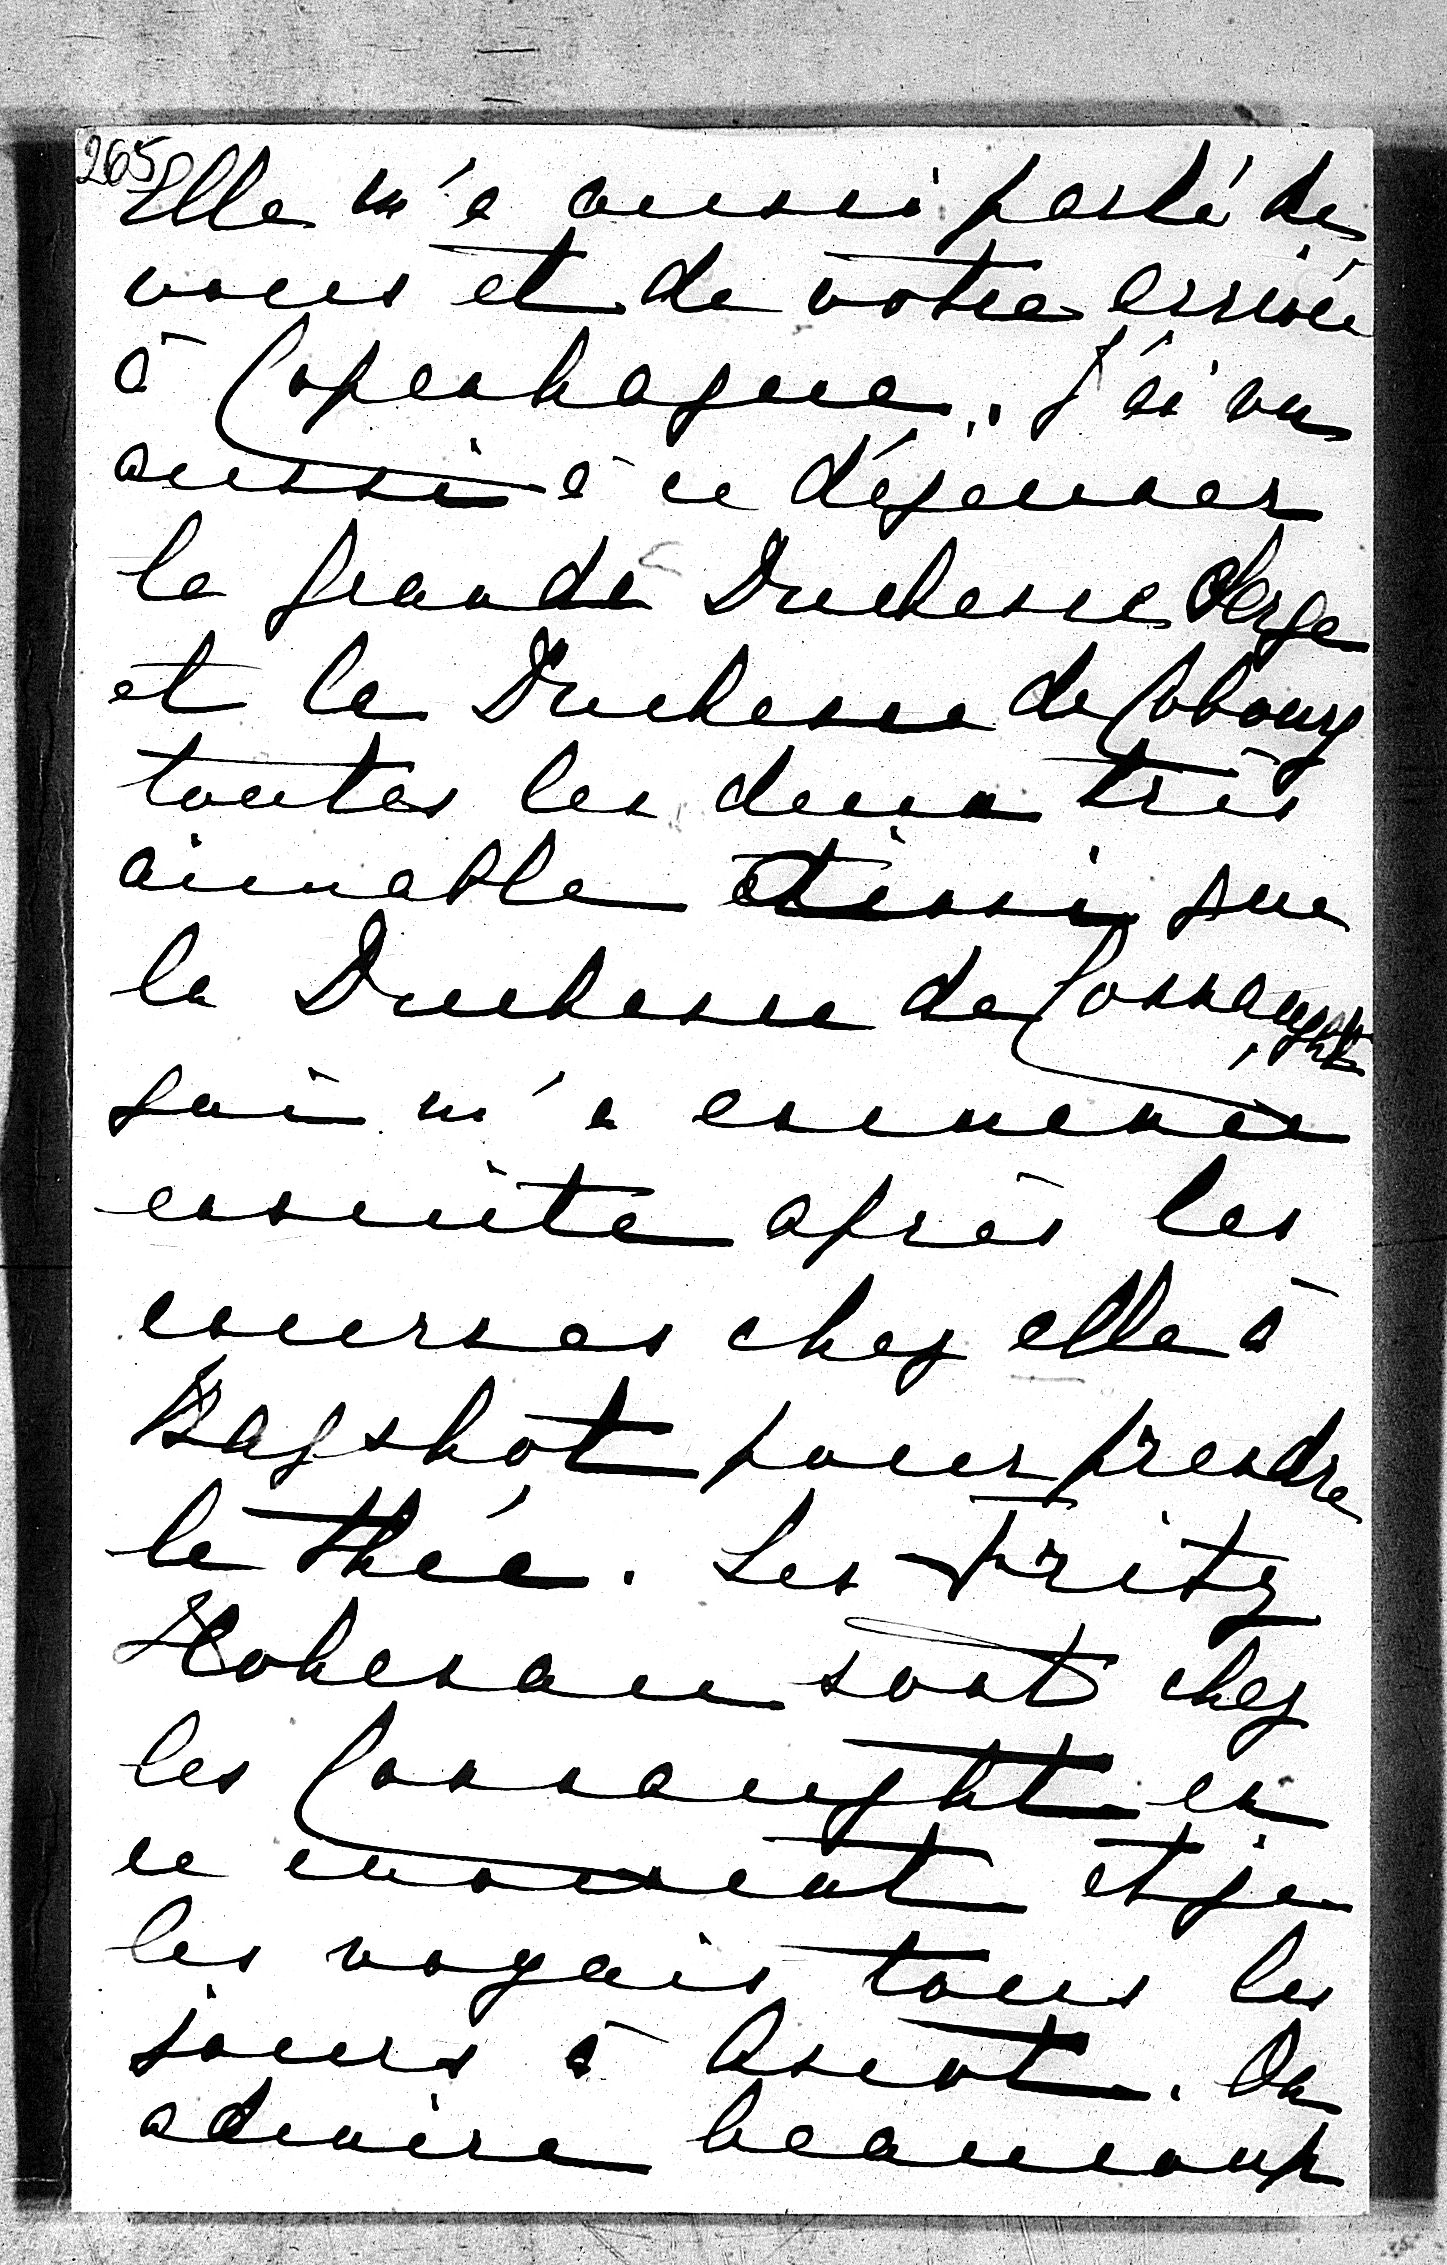 265
Elle m'a aussi parlé de
vous et de votre arrivée
à Copenhague. J'ai vu
aussi à ce déjeuner
la Grande Duchesse Serge
et la Duchesse de Cobourg
toutes les deux très
aimable ainsi que
la Duchesse de Connaught
qui m'a emmenée
ensuite après les
courses chez elle à
Bagshot pour prendre
le thé. Les Fritz
Hohenau sont chez
les Connaught en
ce moment et je
les voyais tous les
jours à Ascot. On
admire beaucoup